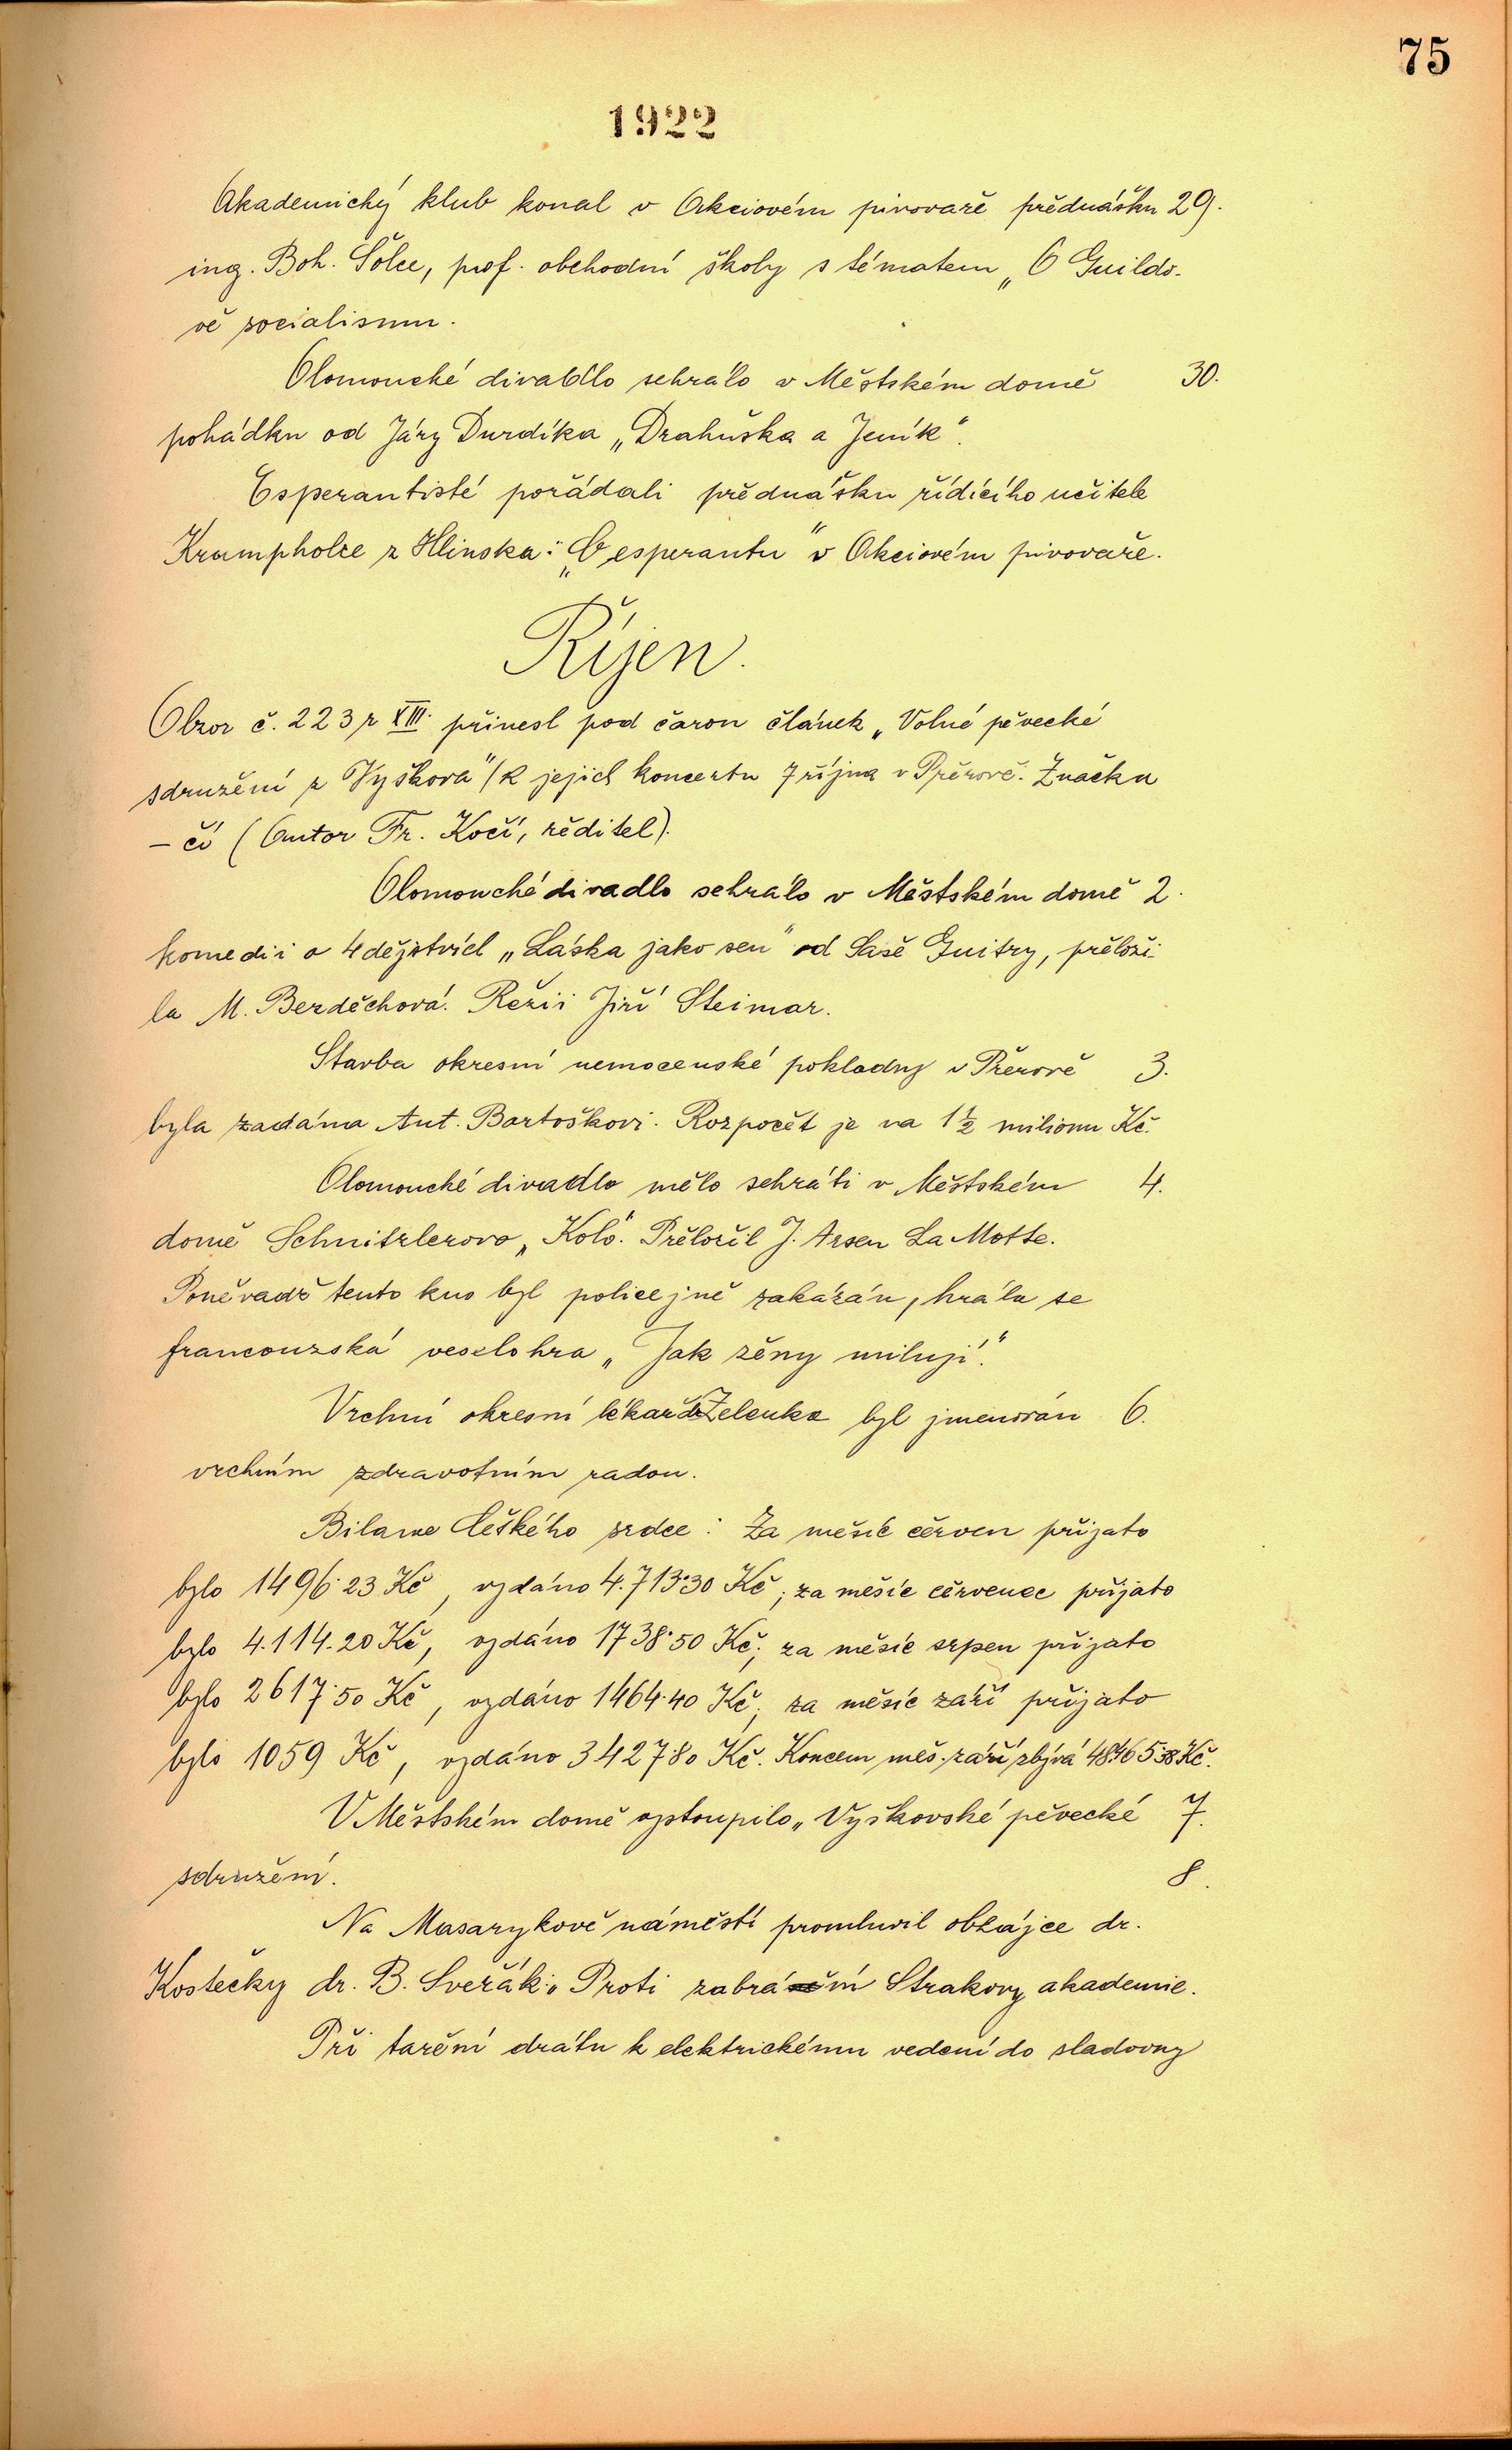 75
1922
Akademický klub konal v Akciovém pivovaře přednášku 29.
ing. Boh. Šolce, prof. obchodní školy s tématem „O Guildo-
vě socialismu.
Olomoucké divadlo sehrálo v Městském domě 30.
pohádku od Járy Durdíka „Drahuška a Jeník".
Esperantisté pořádali přednášku řídícího učitele
Krumpholce z Hlinska: „O esperantu" v Akciovém pivovaře.
Říjen.
Obzor č. 223 r XIII. přinesl pod čarou článek „Volné pěvecké
sdružení z Vyškova" (k jejich koncertu 7 října v Přerově. Značka
– čí (Autor Fr. Kočí, ředitel).
Olomoucké divadlo sehrálo v Městském domě 2.
komedii o 4 dějstvích „Láska jako sen" od Sašě Guitry, přeloži-
la M. Berděchová. Režii Jiří Steimar.
Stavba okresní nemocenské pokladny v Přerově 3.
byla zadána Ant. Bartoškovi. Rozpočet je na 1½ milionu Kč.
Olomoucké divadlo mělo sehráti v Městském 4.
domě Schnitzlerovo „Kolo". Přeložil J. Arsen La Motte.
Poněvadž tento kus byl policejně zakázán, hrála se
francouzská veselohra „Jak ženy milují."
Vrchní okresní lékař dr Zelenka byl jmenován 6.
vrchním zdravotním radou.
Bilance Českého srdce: Za měsíc červen přijato
bylo 1496·23 Kč, vydáno 4.713·30 Kč; za měsíc červenec přijato
bylo 4.114.20 Kč, vydáno 1738·50 Kč; za měsíc srpen přijato
bylo 2617·50 Kč, vydáno 1464·40 Kč; za měsíc září přijato
bylo 1059 Kč, vydáno 3427·80 Kč. Koncem měs. září zbývá 48.465·38 Kč.
V Městském domě vystoupilo „Vyškovské pěvecké 7.
sdružení. 8.
Na Masarykově náměstí promluvil obhájce dr.
Kostečky dr. B. Sveřák: „Proti zabrání Strakovy akademie.
Při tažení drátu k elektrickému vedení do sladovny